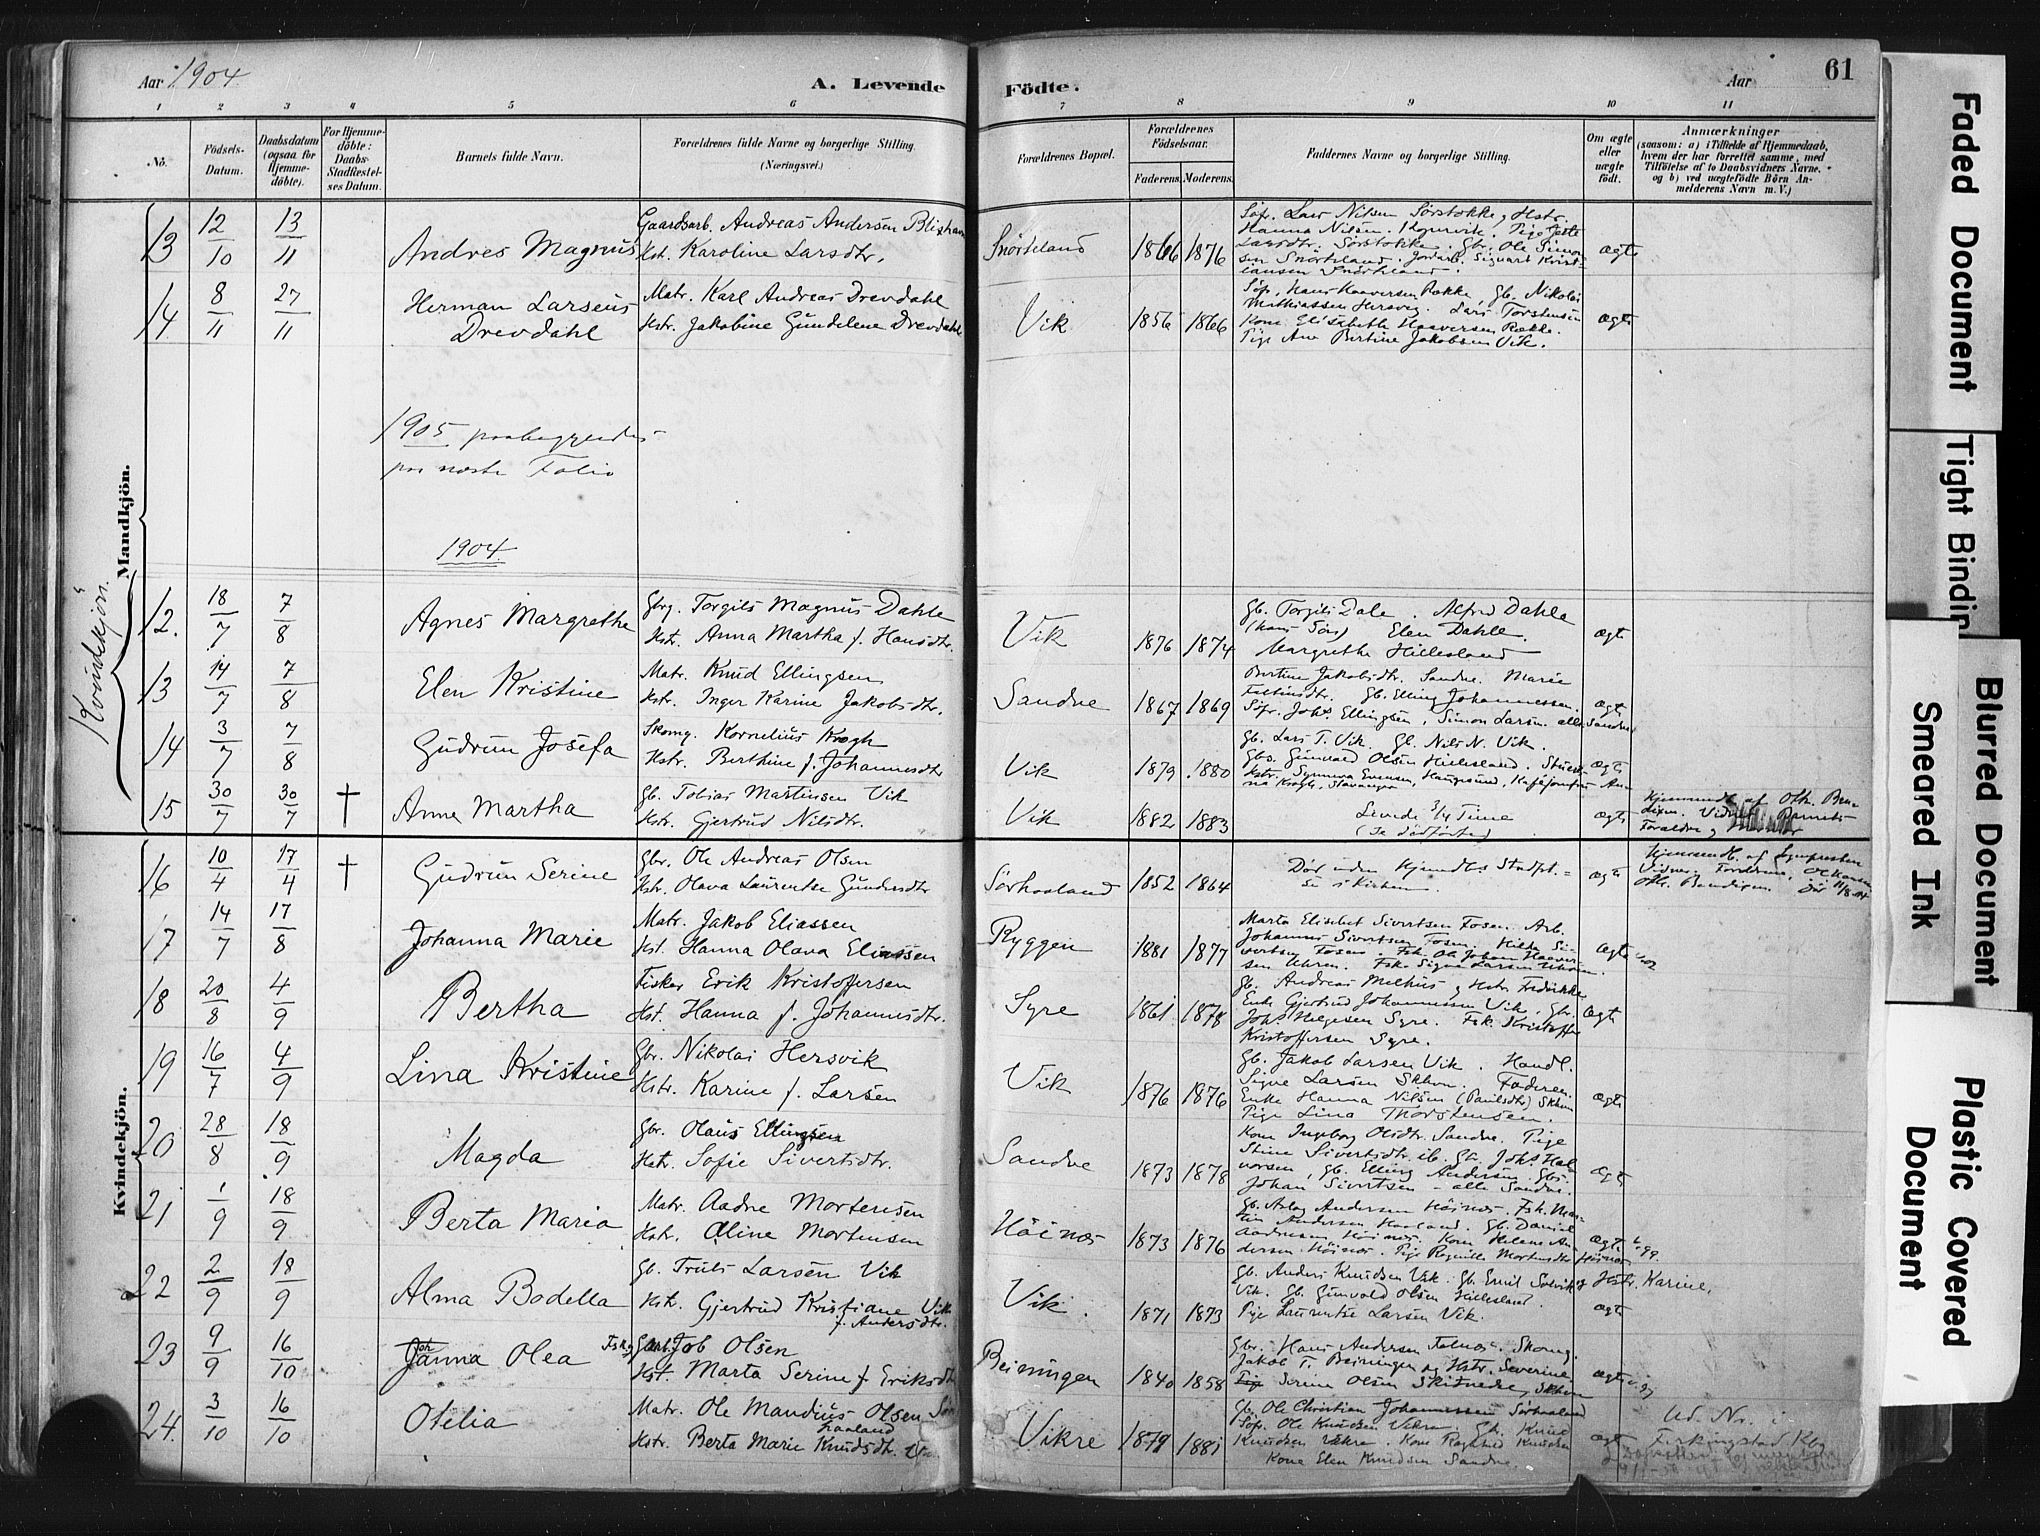 Aar 1904
A. Levende
Födte.
Aar
61
1 2 3 4 5 6 7 8 9 10 11
No.
Födsels-
Datum.
Daabsdatum
(ogsaa for
Hjemme-
döbte).
For Hjemme-
döbte:
Daabs-
Stadfæstel-
ses Datum.
Barnets fulde Navn.
Forældrenes fulde Navne og borgerlige Stilling.
(Næringsvei.)
Forældrenes Bopæl.
Forældrenes
Födselsaar.
Faderens. Moderens.
Faddernes Navne og borgerlige Stilling.
Om ægte
eller
uægte
födt.
Anmærkninger
(saasom: a) i Tilfælde af Hjemmedaab,
hvem der har forrettet samme, med
Tilföielse af to Daabsvidners Navne.
og b) ved uægtefödte Börn An-
melderens Navn m. V.)
Mandkjön.
13 12/10 13/11 Andres Magnus
Gaardsarb. Andreas Andersen Blixhavn
Hst. Karoline Larsdtr.
Snörteland 1866 1876
Söfr. Lars Nilsen Sörstokke, Hstr.
Hanna Nilsen. Pige
Larsdtr. Sörstokke. Gbr. Ole Simon-
sen Snörteland. Jordarb. Sigvart Krist-
iansen Snörteland.
ægte
14 8/11 27/11 Herman Larseus
Drevdahl
Matr. Karl Andreas Drevdahl
Hstr. Jakobine Gundelene Drevdahl
Vik 1856 1866
Söfr. Hans Haaversen Rökke, Gb. Nikolai
Mathiassen Hersvig. Lars Torstensen
Kone Elisabeth Haaversen Rökke.
Pige Ane Bertine Jakobsen Vik.
ægte
1905 paabegyndes
paa næste Folio
1904
Kvindekjön.
12. 18/7 7/8 Agnes Margrethe
Gbrg. Torgils Magnus Dahle
Hst. Anna Martha f. Hansdtr.
Vik 1876 1874
Gb. Torgils Dale. Alfred Dahle
(hans Sön) Elen Dahle.
Margrethe Hillesland
ægte
13 14/7 7/8 Elen Kristine
Matr. Knud Ellingsen
Hst. Inger Karine Jakobsdtr.
Sandve 1867 1869
Bertine Jakobsdtr. Sandve. Marie
Gb. Elling Johannessen.
Söfr. Johs. Ellingsen, Simon Larsen alle Sandve
ægte
14 3/7 7/8 Gudrun Josefa
Skomg. Kornelius Krogh
Hstr. Berthine f. Johannesdtr
Vik 1879 1880
Gb. Lars T. Vik. Gb. Nils N. Vik.
Gbs. Gunvald Olsen Hillesland.
ægte
15 30/7 30/7 † Anne Martha
Gb. Tobias Martinsen Vik
Hstr. Gjertrud Nilsdtr.
Vik 1882 1883
Levede 3/4 Time
(Se dödfødte)
ægte
Kvindekjön.
16 10/4 17/4 † Gudrun Serine
Gbr. Ole Andreas Olsen
Hstr. Olava Laurentse Gundersdtr
Sörhaaland 1852 1864
Död uden Hjemmedbs Stadfæst.=
se i kirken.
ægte
17 14/7 17/8 Johanna Marie
Matr. Jakob Eliassen
Hst. Hanna Olava Eliassen
Ryggen 1881 1877
Marta Elisabet Sivertsen Fosen. Arb.
Johannes Sivertsen Fosen. Hilda Si-
vertsen Fosen. Fsk. Ole Johan Haaver-
sen Uhren. Fsk. Signe Larsen Uhren.
ægte
18 20/8 4/9 Bertha
Fisker Erik Kristoffersen
Hst. Hanna f. Johannesdtr.
Syre 1861 1878
Gb. Andreas Melhus, Hstr. Fredrikke
Enke Gjertrud Johannessen Vik, Gbr.
Johs. Helgesen Syre. Fsk. Kristoffer
Kristoffersen Syre.
ægte
19 16/7 4/9 Lina Kristine
Gbr. Nikolai Hersvik
Hstr. Karine f. Larsen
Vik 1876 1876
Gb. Jakob Larsen Vik. Handl.
Signe Larsen Skhvn. Faderen.
Enke Hanna Nilsen (Paulsdtr) Skhvn
Pige Lina Thorstensen.
ægte
20 28/8 18/9 Magda
Gbr. Olaus Ellingsen
Hstr. Sofie Sivertsdtr.
Sandve 1873 1878
Kone Ingeborg Olsdtr. Sandve. Pige
Stine Sivertsdtr. ib. Gb. Johs. Hal-
vorsen, Gb. Elling Andersen. Gbs.
Johan Sivertsen - alle Sandve.
ægte
21 1/9 18/9 Berta Maria
Matr. Aadne Mortensen
Hstr. Oline Mortensen
Höinæs 1873 1876
Gb. Aslag Andersen Höinæs. Fsk. Mar-
tin Andersen Haaland. Gb. Daniel
Aadnesen Höinæs. Kone Helene An-
dersen Höinæs. Pige Ragnille Mortensdtr Höinæs
ægte
22 2/9 18/9 Alma Bodella
Gb. Truls Larsen Vik
Hstr. Gjertrud Kristiane Vik
f. Andersdtr.
Vik. 1871 1873
Gb. Anders Knudsen Vik. Gb. Emil Solvik og Hstr. Karine,
Vik. Gb. Gunvald Olsen Hillesland.
Pige Laurentse Larsen Vik.
ægte
23 9/9 16/10 Johanna Olea
Job Olsen
Hst. Marta Serine f. Eriksdtr
Beiningen 1840 1858
Gbr. Hans Andersen Falnæs. Skomg.
Jakob T. Beiningen og Hstr. Severine.
Pige Serine Olsen Skitnedre, Skhvn
ægte
24. 3/10 16/10 Otilia
Matr. Ole Mandius Olsen Sör-
haaland
Hstr. Berta Marie Knudsdtr.
Vikre 1879 1881
Gb. Ole Christian Johannessen Sörhaaland
Söfr. Ole Knudsen Vikra. Gb. Knud
Knudsen Vikra. Kone Ragnhild Knudsen
Kone Elen Knudsen Sandve.
ægte
Ud. Nr. i
Ferkingstad Kbg
Faded Document
Tight Bindin
Blurred Document
Smeared Ink
Plastic Covered
Document